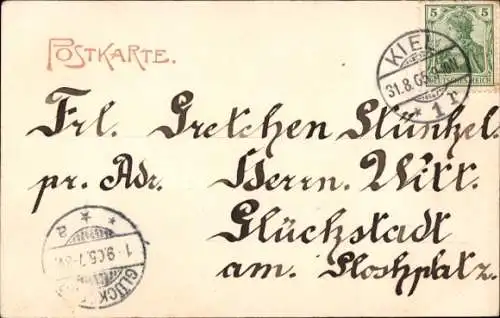 POSTKARTE.
5 5
DEUTSCHES REICH
KIEL
31.8.05
* 1 r
Frl. Gretchen Stünkel.
pr. Adr. Herrn. Witt.
Glückstadt
am.
* * a
1.9.05.7-8V.
GLÜCK